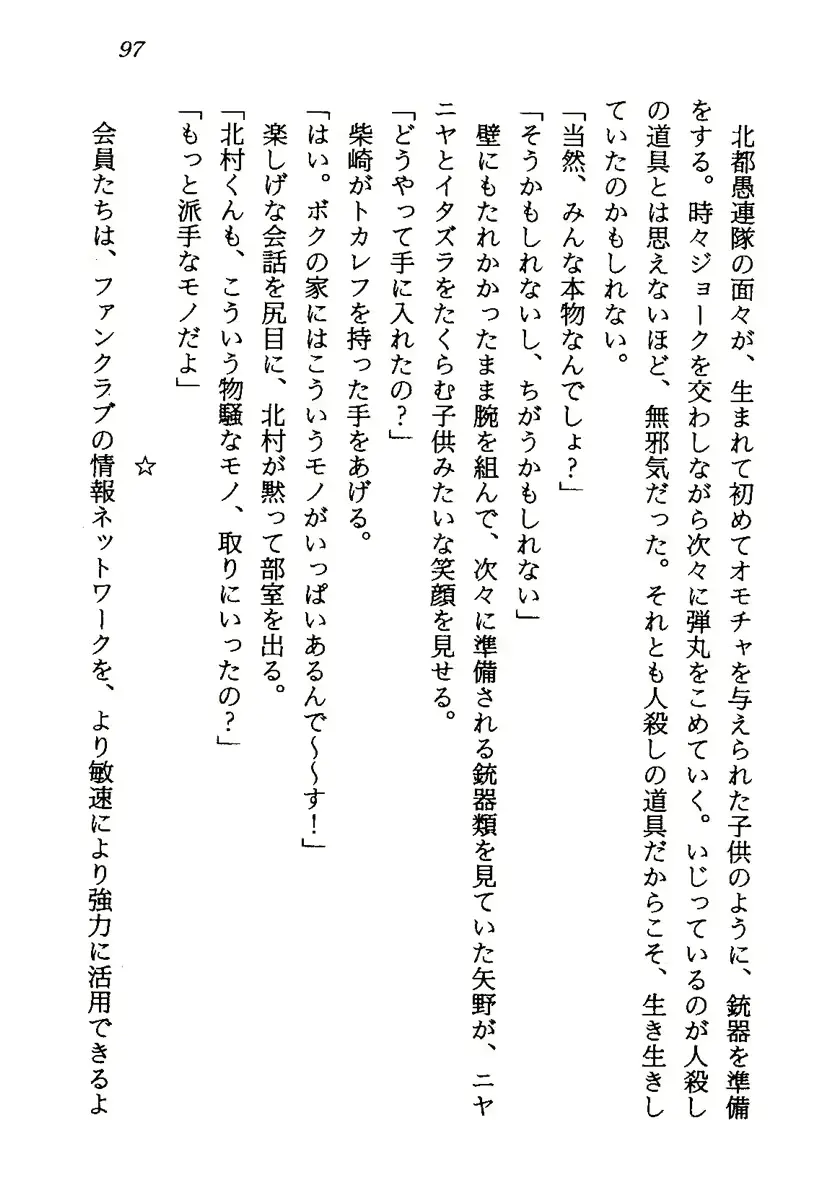 97
北都愚連隊の面々が、生まれて初めてオモチャを与えられた子供のように、銃器を準備
をする。時々ジョークを交わしながら次々に弾丸をこめていく。いじっているのが人殺し
の道具とは思えないほど、無邪気だった。それとも人殺しの道具だからこそ、生き生きし
ていたのかもしれない。
「当然、みんな本物なんでしょ？」
「そうかもしれないし、ちがうかもしれない」
壁にもたれかかったまま腕を組んで、次々に準備される銃器類を見ていた矢野が、ニヤ
ニヤとイタズラをたくらむ子供みたいな笑顔を見せる。
「どうやって手に入れたの？」
柴崎がトカレフを持った手をあげる。
「はい。ボクの家にはこういうモノがいっぱいあるんで〜〜す！」
楽しげな会話を尻目に、北村が黙って部室を出る。
「北村くんも、こういう物騒なモノ、取りにいったの？」
「もっと派手なモノだよ」
☆
会員たちは、ファンクラブの情報ネットワークを、より敏速により強力に活用できるよ